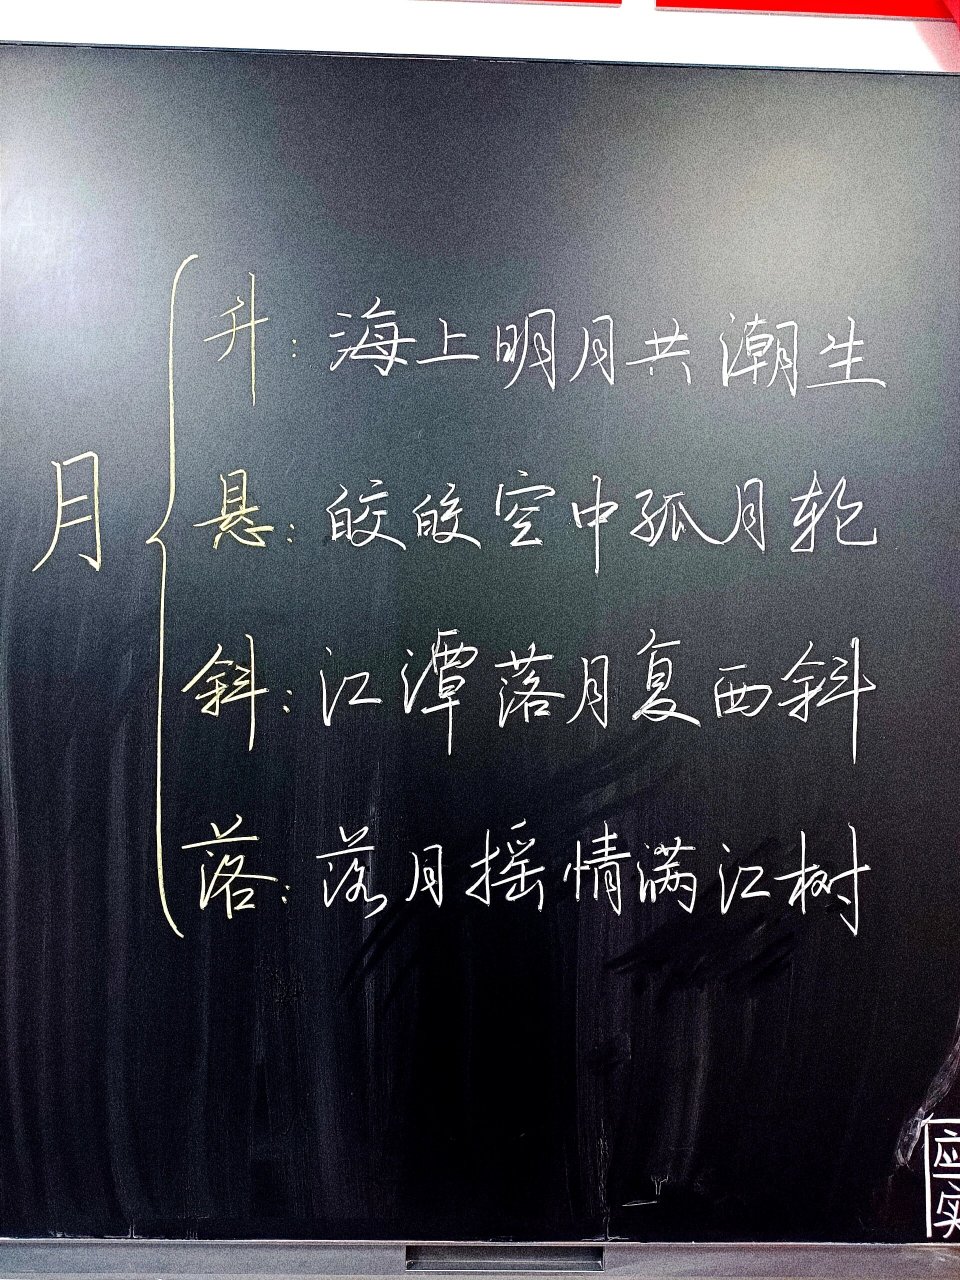 月
升：海上明月共潮生
悬：皎皎空中孤月轮
斜：江潭落月复西斜
落：落月摇情满江树
应
实